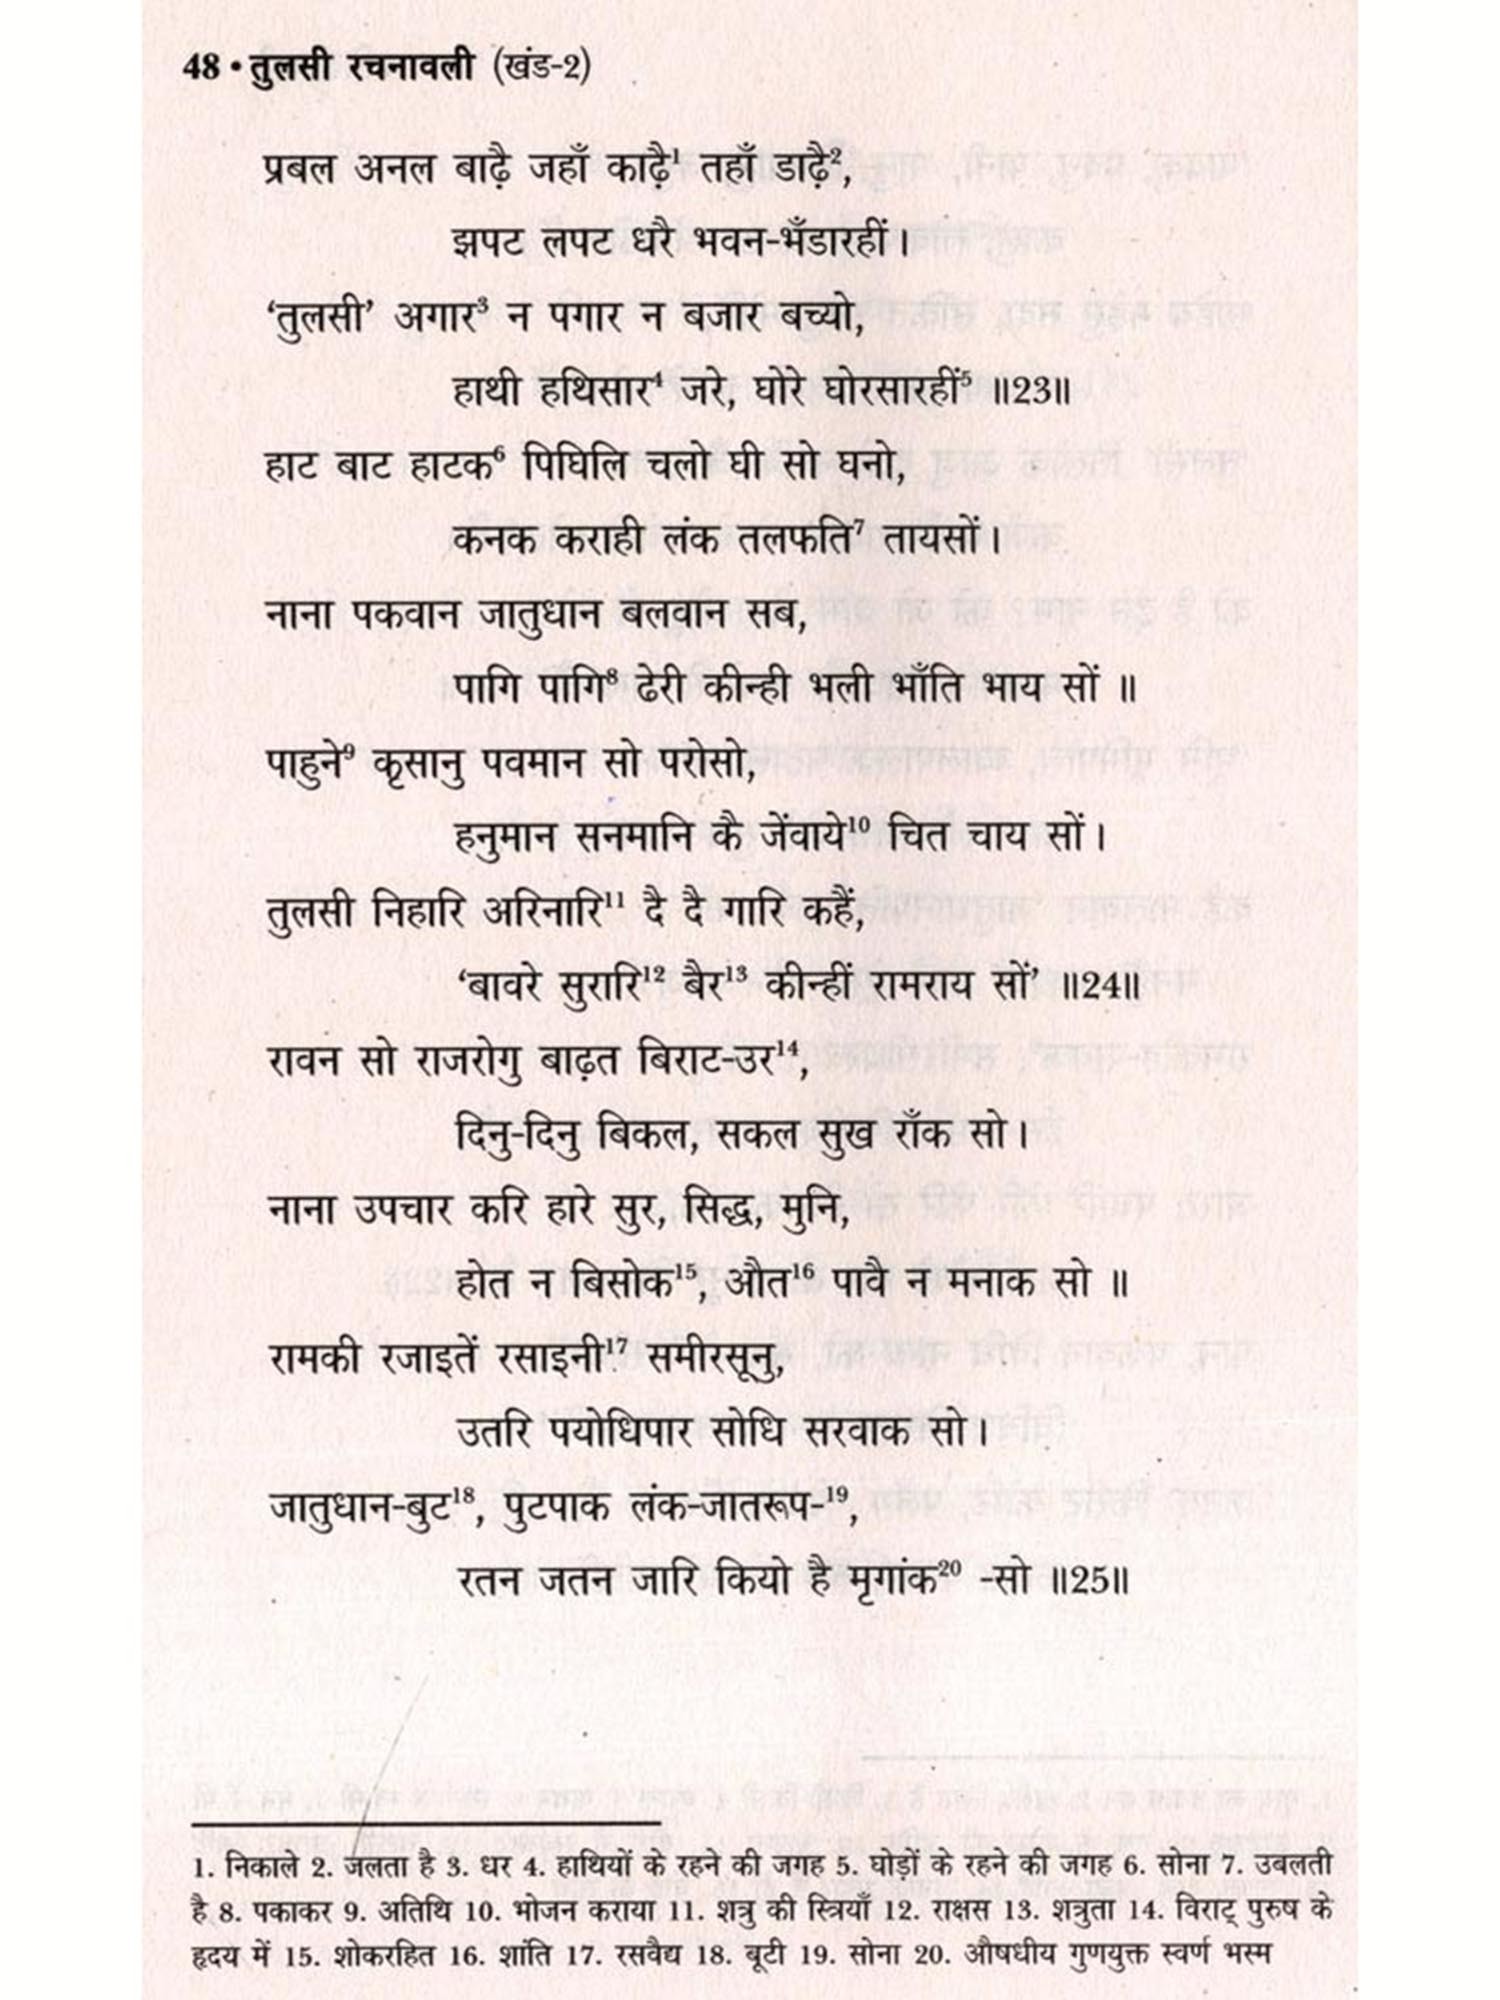 48 • तुलसी रचनावली (खंड-2)
प्रबल अनल बाढ़ै जहाँ काढ़ै¹ तहाँ डाढ़ै²,
झपट लपट धरै भवन-भँडारहीं।
‘तुलसी’ अगार³ न पगार न बजार बच्यो,
हाथी हथिसार⁴ जरे, घोरे घोरसारहीं⁵ ॥23॥
हाट बाट हाटक⁶ पिघिलि चलो घी सो घनो,
कनक कराही लंक तलफति⁷ तायसों।
नाना पकवान जातुधान बलवान सब,
पागि पागि⁸ ढेरी कीन्ही भली भाँति भाय सों ॥
पाहुने⁹ कृसानु पवमान सो परोसो,
हनुमान सनमानि कै जेंवाये¹⁰ चित चाय सों।
तुलसी निहारि अरिनारि¹¹ दै दै गारि कहैं,
‘बावरे सुरारि¹² बैर¹³ कीन्हीं रामराय सों’ ॥24॥
रावन सो राजरोगु बाढ़त बिराट-उर¹⁴,
दिनु-दिनु बिकल, सकल सुख राँक सो।
नाना उपचार करि हारे सुर, सिद्ध, मुनि,
होत न बिसोक¹⁵, औत¹⁶ पावै न मनाक सो ॥
रामकी रजाइतें रसाइनी¹⁷ समीरसूनु,
उतरि पयोधिपार सोधि सरवाक सो।
जातुधान-बुट¹⁸, पुटपाक लंक-जातरूप-¹⁹,
रतन जतन जारि कियो है मृगांक²⁰ -सो ॥25॥
1. निकाले 2. जलता है 3. धर 4. हाथियों के रहने की जगह 5. घोड़ों के रहने की जगह 6. सोना 7. उबलती
है 8. पकाकर 9. अतिथि 10. भोजन कराया 11. शत्रु की स्त्रियाँ 12. राक्षस 13. शत्रुता 14. विराट् पुरुष के
हृदय में 15. शोकरहित 16. शांति 17. रसवैद्य 18. बूटी 19. सोना 20. औषधीय गुणयुक्त स्वर्ण भस्म